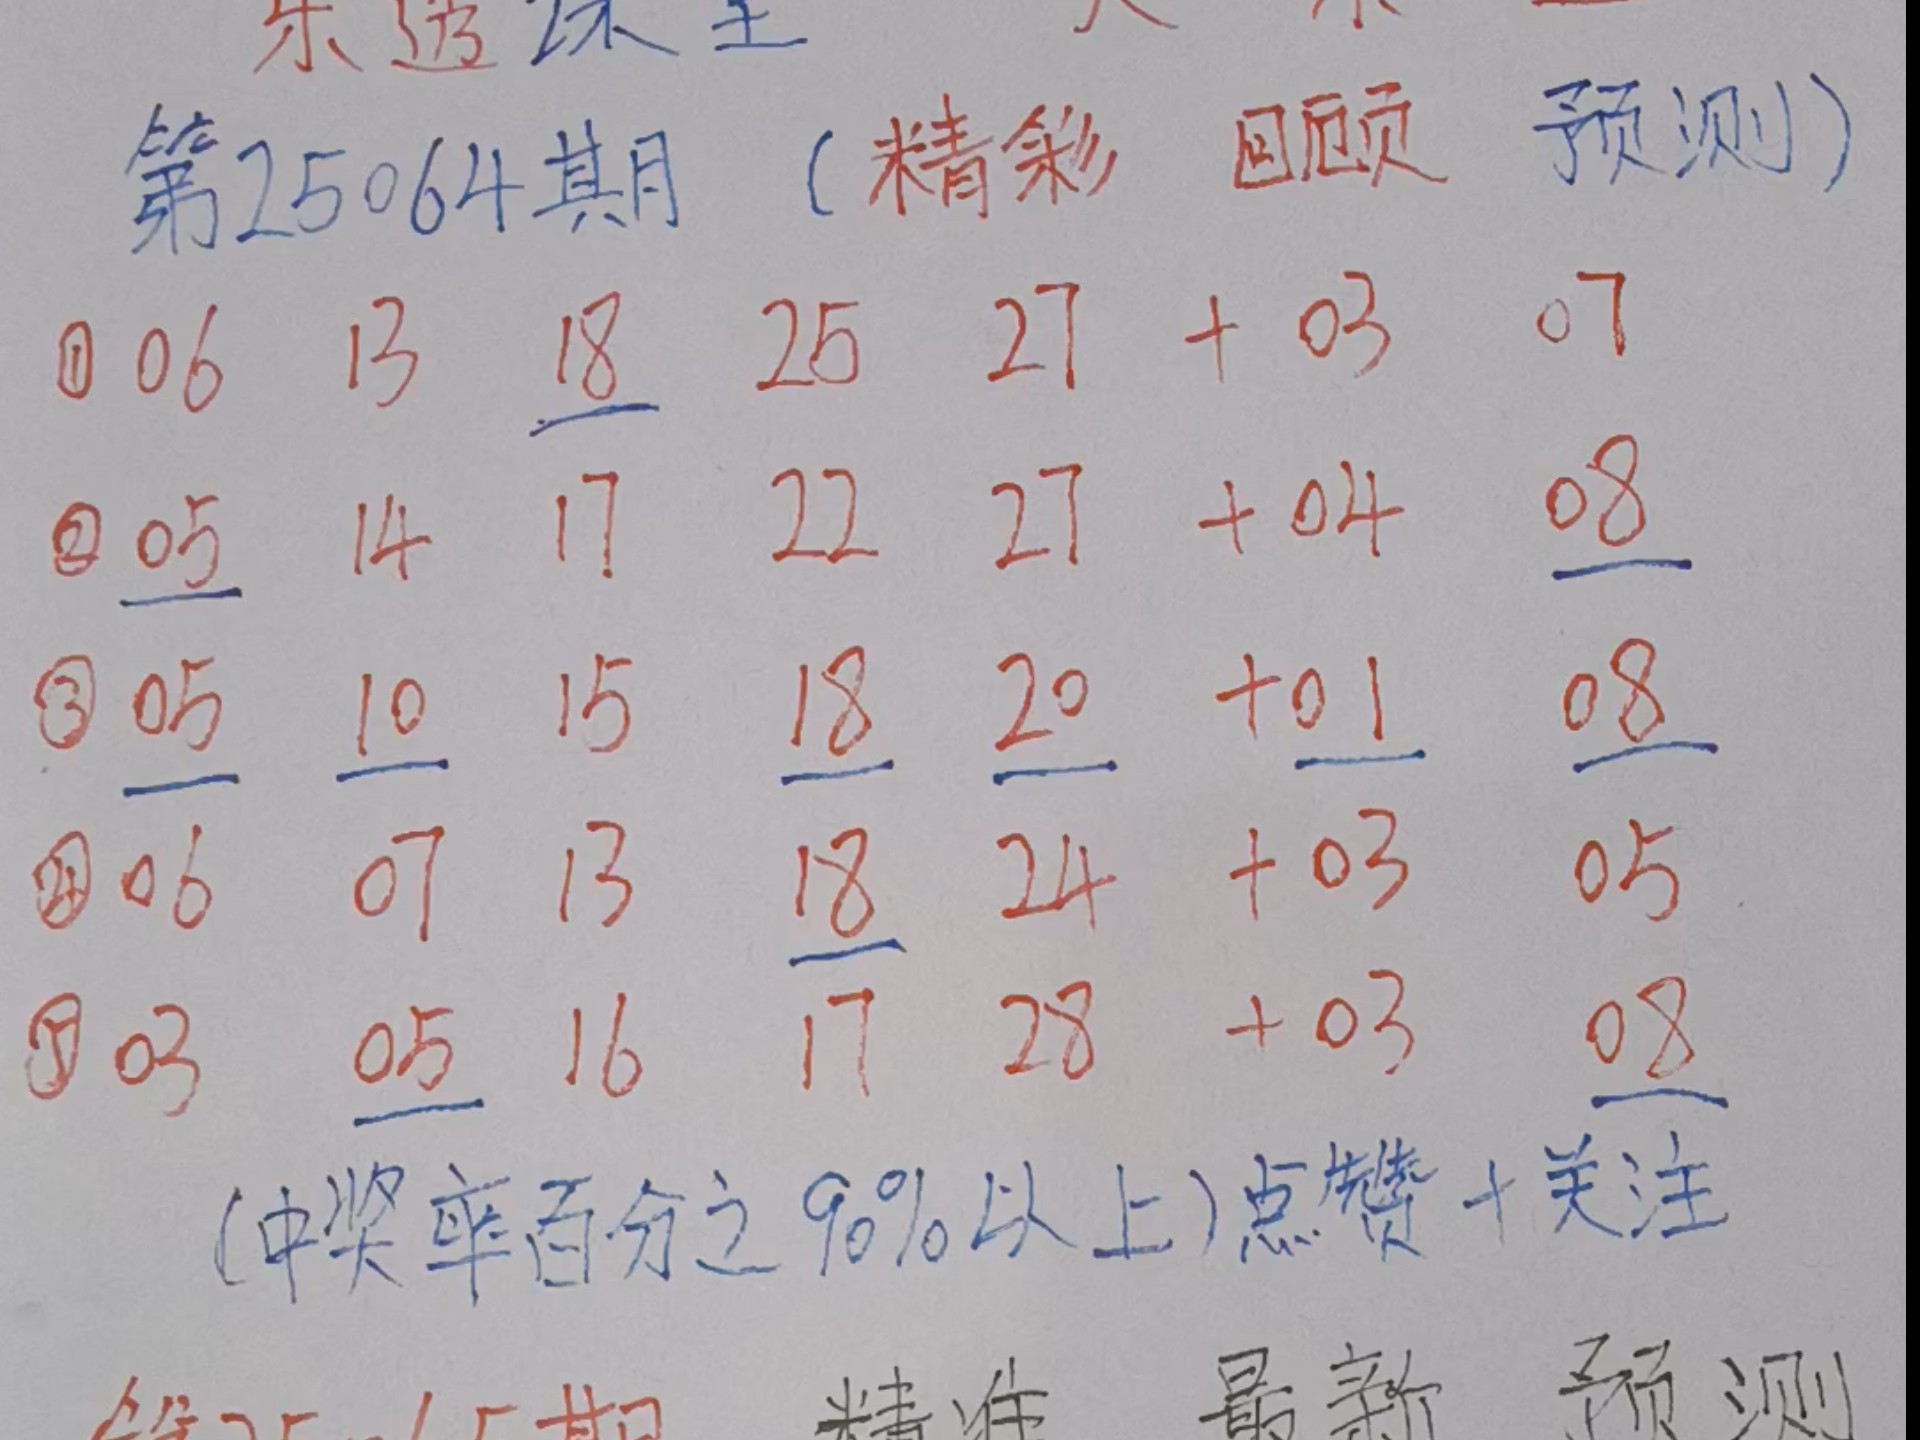 乐透课堂
第25064期 (精彩 回顾 预测)
① 06 13 18 25 27 + 03 07
② 05 14 17 22 27 + 04 08
③ 05 10 15 18 20 + 01 08
④ 06 07 13 18 24 + 03 05
⑤ 03 05 16 17 28 + 03 08
(中奖率百分之90%以上)点赞+关注
第25065期 精准 最新 预测